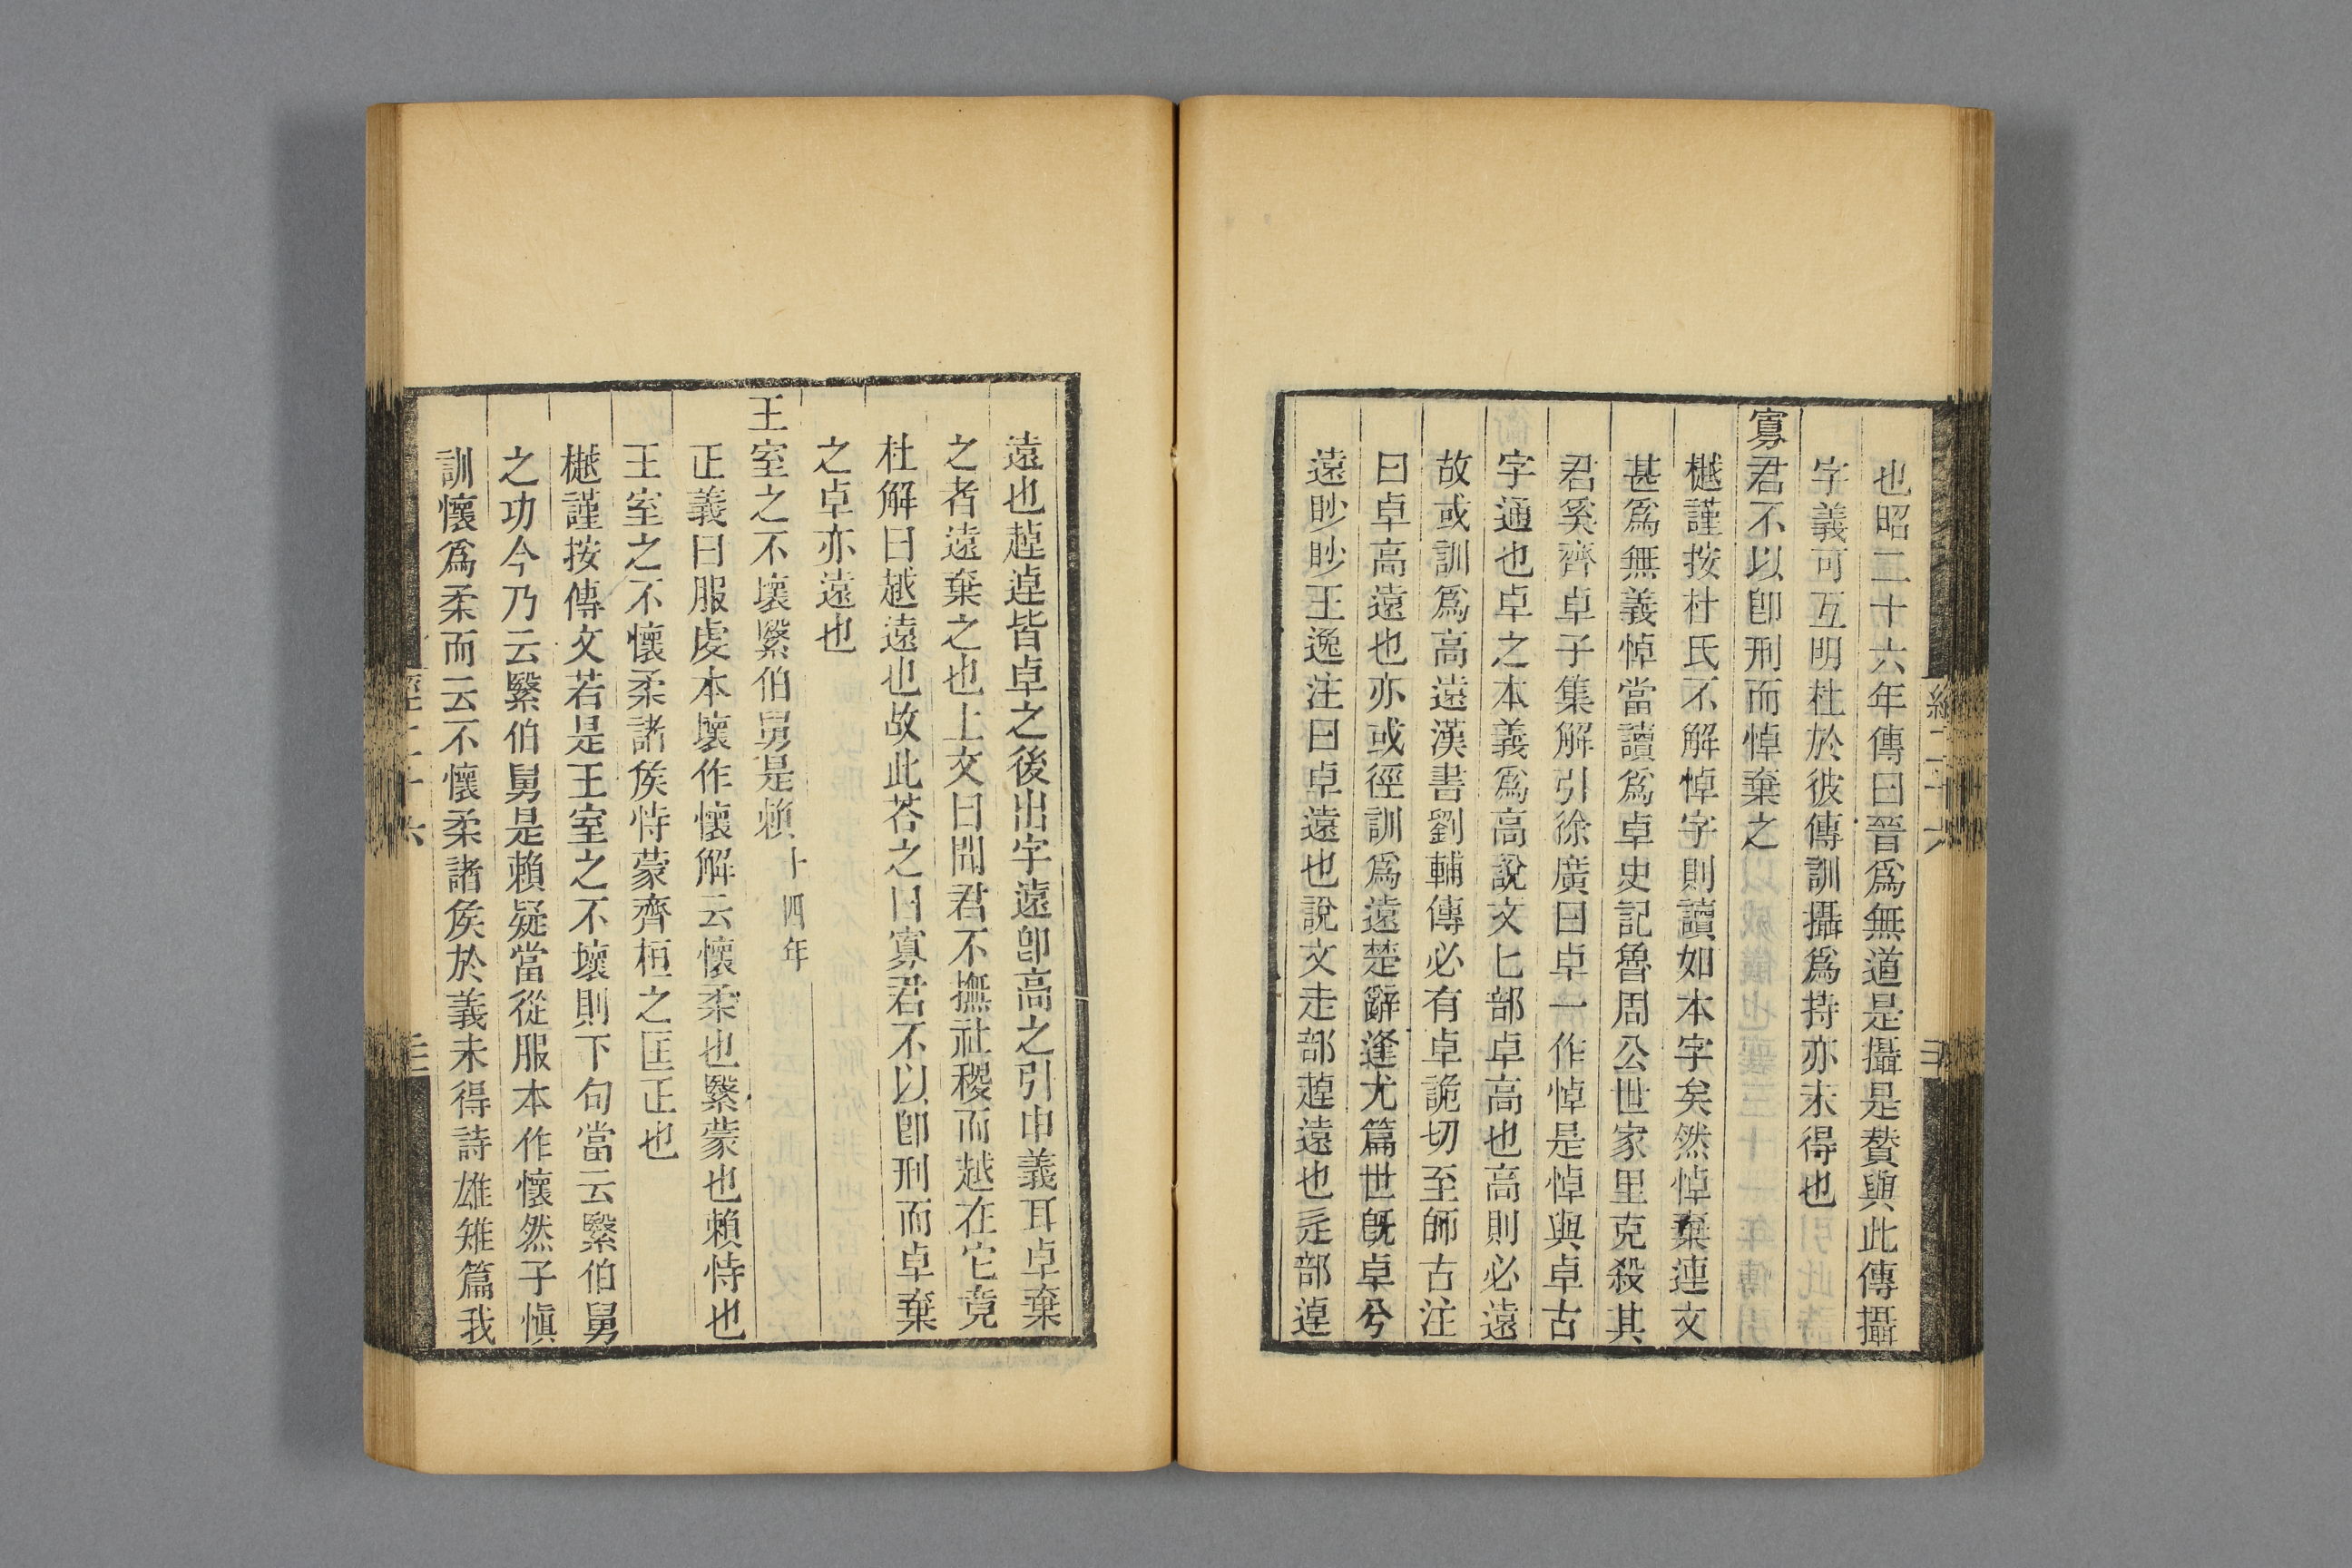 也昭二十六年傳曰晉爲無道是攝是贊與此傳攝
字義可互明杜於彼傳訓攝爲持亦未得也
寡君不以卽刑而悼棄之
樾謹按杜氏不解悼字則讀如本字矣然悼棄連文
甚爲無義悼當讀爲卓史記魯周公世家里克殺其
君奚齊卓子集解引徐廣曰卓一作悼是悼與卓古
字通也卓之本義爲高說文匕部卓高也高則必遠
故或訓爲高遠漢書劉輔傳必有卓詭切至師古注
曰卓高遠也亦或徑訓爲遠楚辭逢尤篇世旣卓兮
遠眇眇王逸注曰卓遠也說文走部趠遠也辵部逴
遠也趠逴皆卓之後出字遠卽高之引申義耳卓棄
之者遠棄之也上文曰聞君不撫社稷而越在它竟
杜解曰越遠也故此荅之曰寡君不以卽刑而卓棄
之卓亦遠也
王室之不壞繄伯舅是賴十四年
正義曰服虔本壞作懷解云懷柔也繄蒙也賴恃也
王室之不懷柔諸侯恃蒙齊桓之匡正也
樾謹按傳文若是王室之不壞則下句當云繄伯舅
之功今乃云繄伯舅是賴疑當從服本作懷然子愼
訓懷爲柔而云不懷柔諸侯於義未得詩雄雉篇我